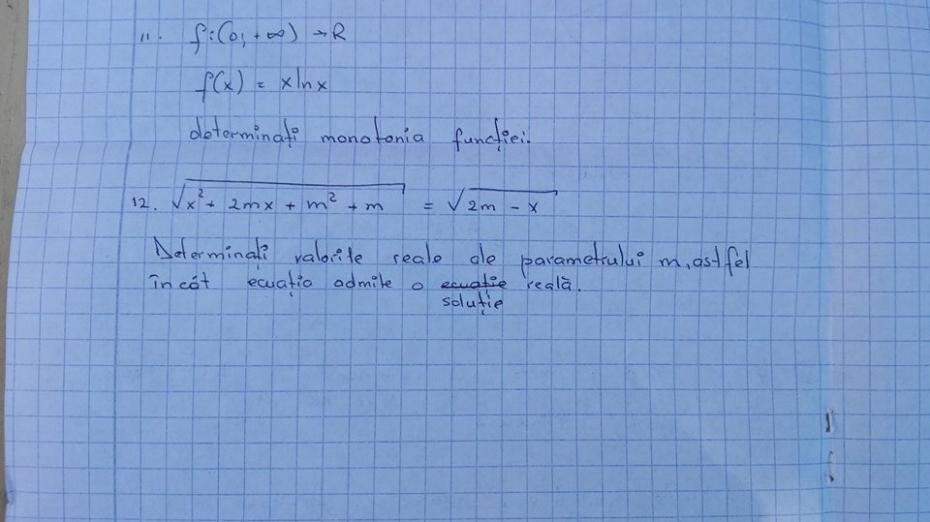 11. f:(0, +∞) → R
f(x) = x ln x
determinați monotonia funcției.
12. √x² + 2mx + m² + m = √2m - x
Determinați valorile reale ale parametrului m, astfel
încât ecuația admite o ecuație reală.
soluție